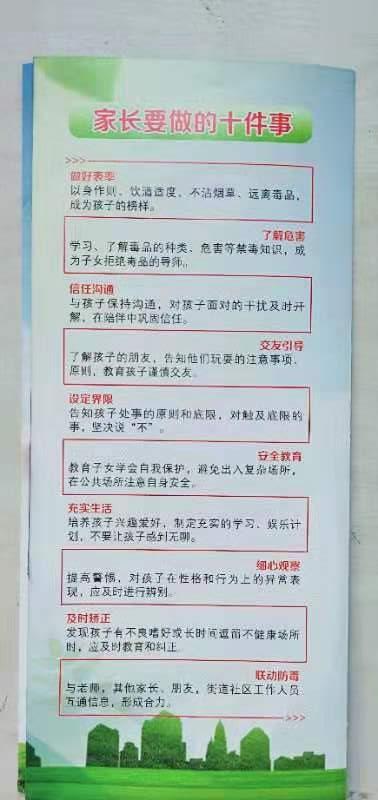 家长要做的十件事
>>>
做好表率
以身作则、饮酒适度、不沾烟草、远离毒品，
成为孩子的榜样。
了解危害
学习、了解毒品的种类、危害等禁毒知识，成
为子女拒绝毒品的导师。
信任沟通
与孩子保持沟通，对孩子面对的干扰及时开
解，在陪伴中巩固信任。
交友引导
了解孩子的朋友，告知他们玩耍的注意事项、
原则，教育孩子谨慎交友。
设定界限
告知孩子处事的原则和底限，对触及底限的
事，坚决说“不”。
安全教育
教育子女学会自我保护，避免出入复杂场所，
在公共场所注意自身安全。
充实生活
培养孩子兴趣爱好，制定充实的学习、娱乐计
划，不要让孩子感到无聊。
细心观察
提高警惕，对孩子在性格和行为上的异常表
现，应及时进行辨别。
及时矫正
发现孩子有不良嗜好或长时间逗留不健康场所
时，应及时教育和纠正。
联动防毒
与老师，其他家长、朋友，街道社区工作人员
互通信息，形成合力。
>>>